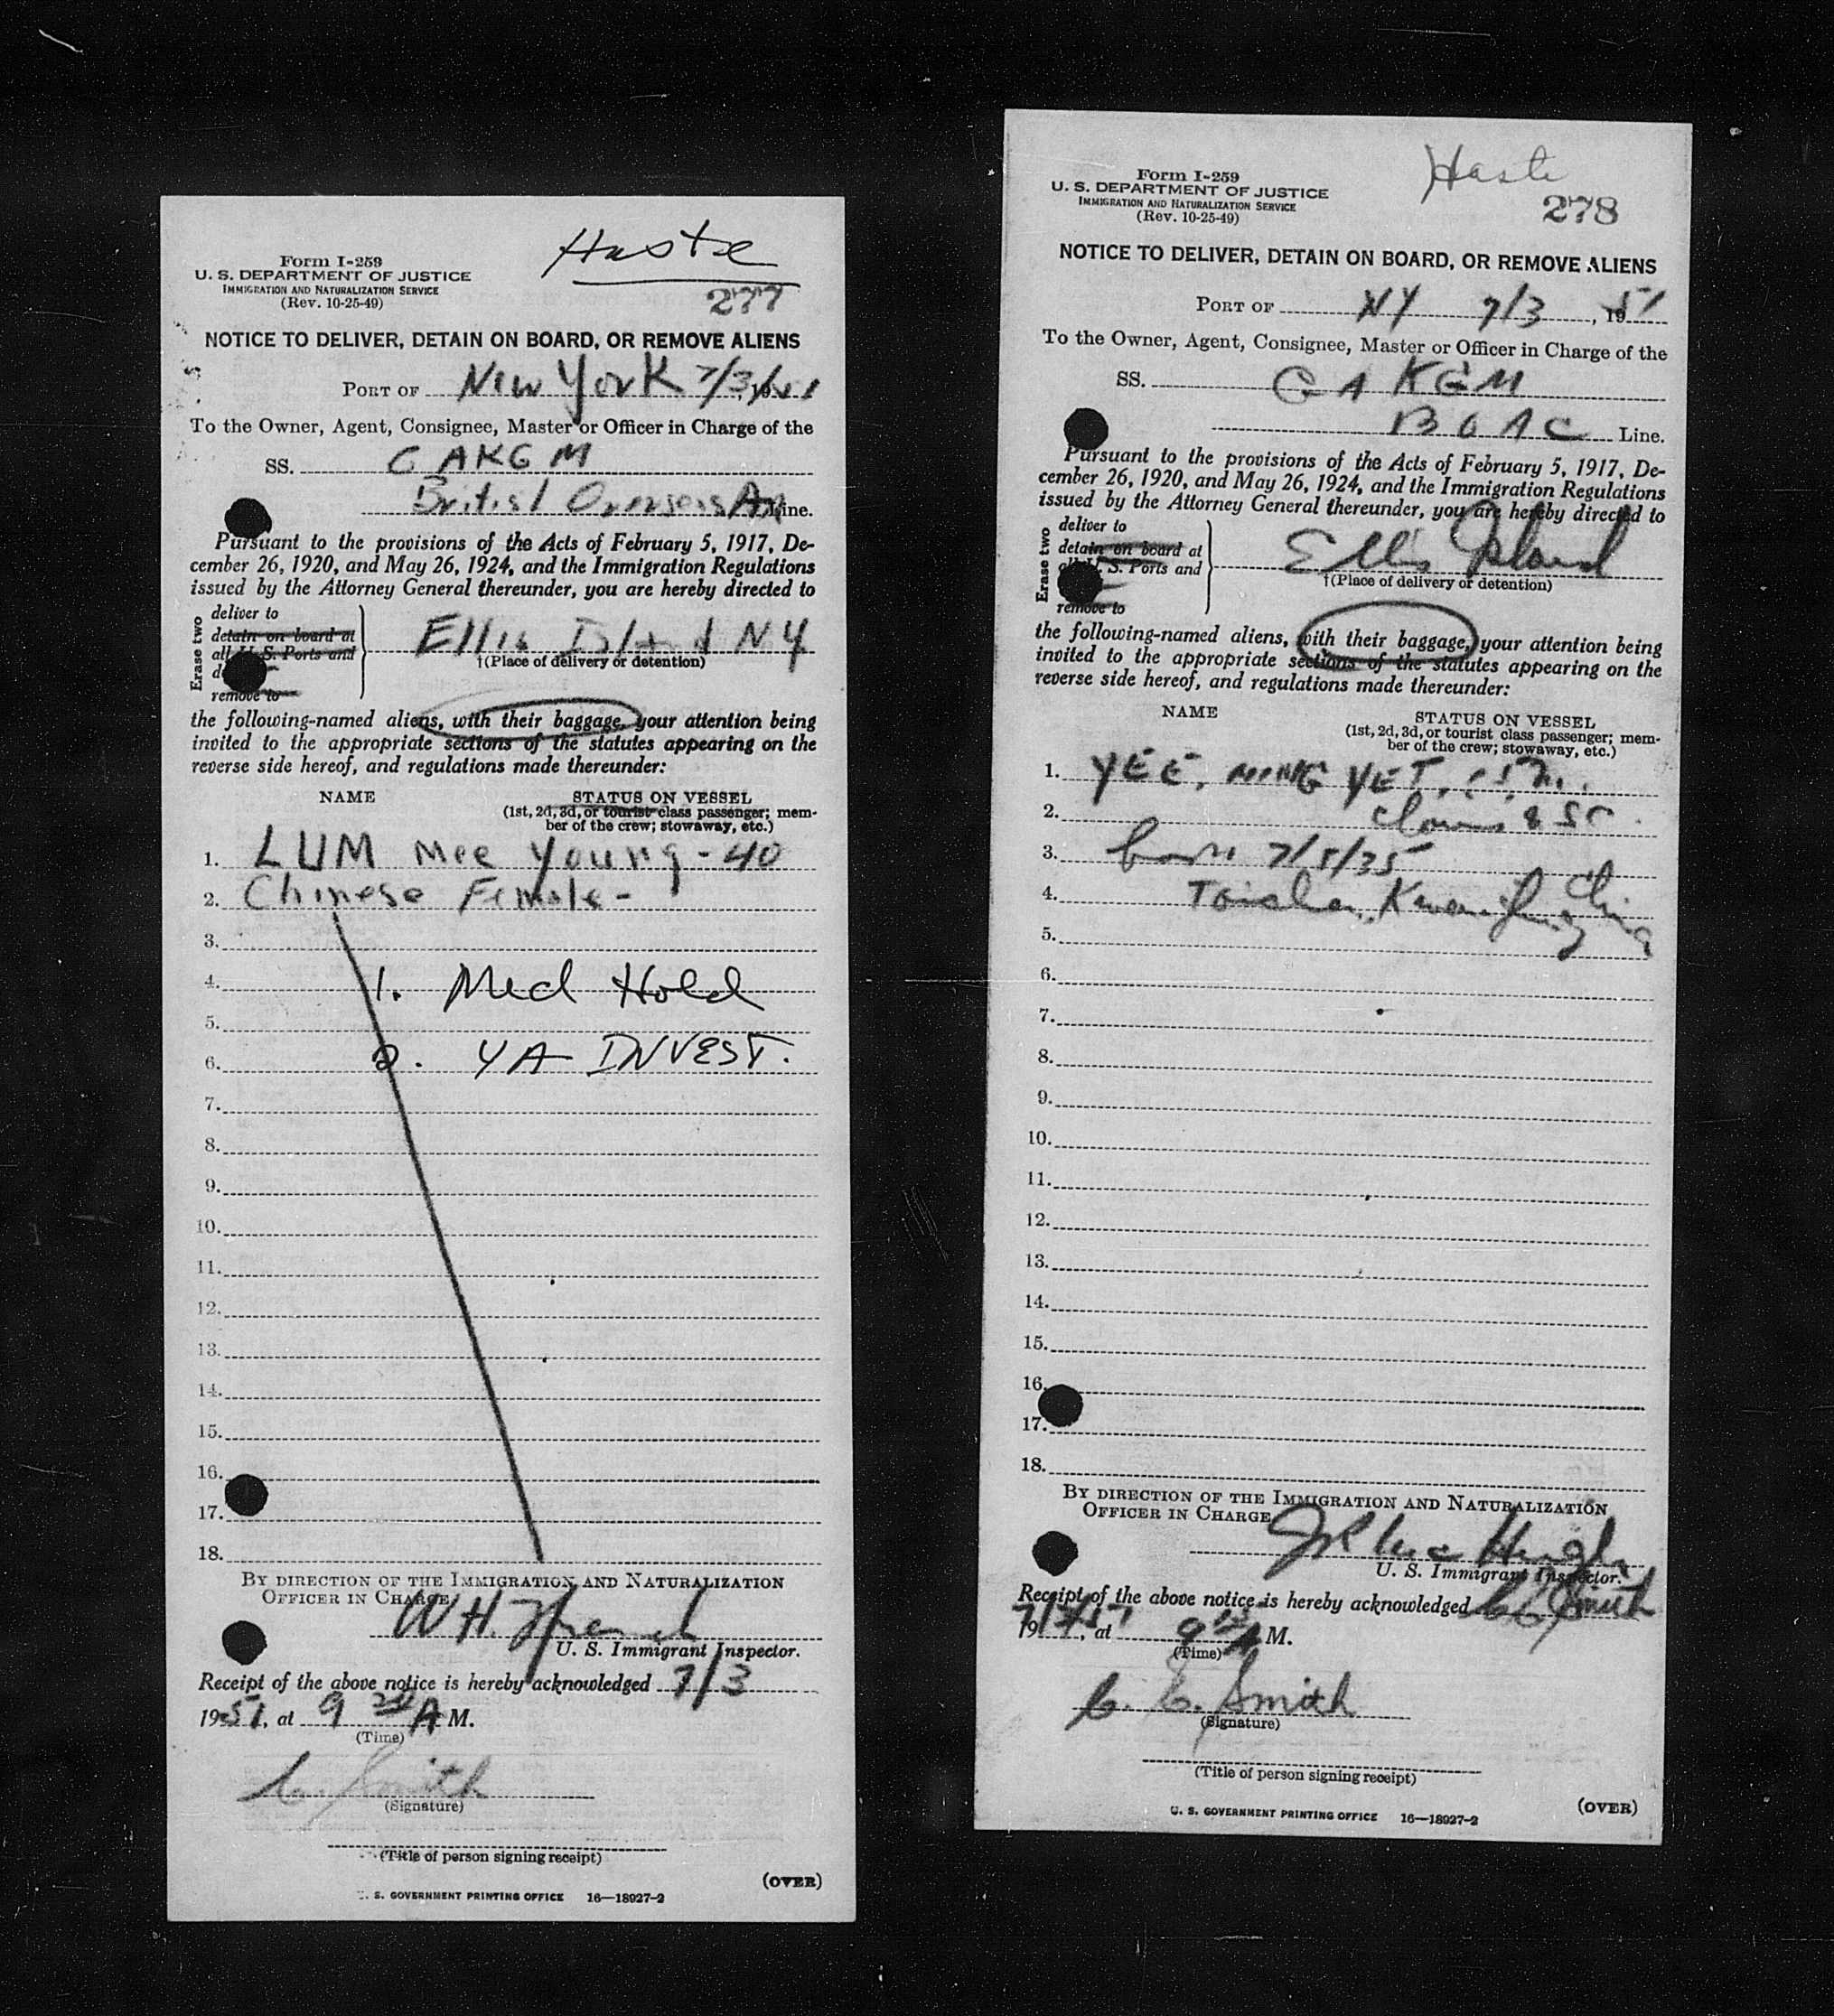 Form I-259
U. S. DEPARTMENT OF JUSTICE
IMMIGRATION AND NATURALIZATION SERVICE
(Rev. 10-25-49)
Haste
277
NOTICE TO DELIVER, DETAIN ON BOARD, OR REMOVE ALIENS
PORT OF New York 7/3, 1951
To the Owner, Agent, Consignee, Master or Officer in Charge of the
SS. G AKGM
British Overseas Air Line.
Pursuant to the provisions of the Acts of February 5, 1917, De-
cember 26, 1920, and May 26, 1924, and the Immigration Regulations
issued by the Attorney General thereunder, you are hereby directed to
Erase two
deliver to
detain on board at
all U. S. Ports and
remove to
Ellis Island NY
†(Place of delivery or detention)
the following-named aliens, with their baggage, your attention being
invited to the appropriate sections of the statutes appearing on the
reverse side hereof, and regulations made thereunder:
NAME
STATUS ON VESSEL
(1st, 2d, 3d, or tourist class passenger; mem-
ber of the crew; stowaway, etc.)
1. LUM Mee Young - 40
2. Chinese Female -
3.
4. 1. Med Hold
5.
6. 2. YA INVEST.
7.
8.
9.
10.
11.
12.
13.
14.
15.
16.
17.
18.
BY DIRECTION OF THE IMMIGRATION AND NATURALIZATION
OFFICER IN CHARGE
W H.
U. S. Immigrant Inspector.
Receipt of the above notice is hereby acknowledged 7/3
1951, at 9 20 A M.
(Time)
C. Smith
(Signature)
(Title of person signing receipt)
(OVER)
U. S. GOVERNMENT PRINTING OFFICE 16—18927-2
Form I-259
U. S. DEPARTMENT OF JUSTICE
IMMIGRATION AND NATURALIZATION SERVICE
(Rev. 10-25-49)
Haste
278
NOTICE TO DELIVER, DETAIN ON BOARD, OR REMOVE ALIENS
PORT OF NY 7/3, 1951
To the Owner, Agent, Consignee, Master or Officer in Charge of the
SS. G A KGM
BOAC Line.
Pursuant to the provisions of the Acts of February 5, 1917, De-
cember 26, 1920, and May 26, 1924, and the Immigration Regulations
issued by the Attorney General thereunder, you are hereby directed to
Erase two
deliver to
detain on board at
all U. S. Ports and
remove to
Ellis Island
†(Place of delivery or detention)
the following-named aliens, with their baggage, your attention being
invited to the appropriate sections of the statutes appearing on the
reverse side hereof, and regulations made thereunder:
NAME
STATUS ON VESSEL
(1st, 2d, 3d, or tourist class passenger; mem-
ber of the crew; stowaway, etc.)
1. YEE, MING YET, 15 m.
2. claims USC.
3. born 7/5/35
4. Toishan, Kwangtung China
5.
6.
7.
8.
9.
10.
11.
12.
13.
14.
15.
16.
17.
18.
BY DIRECTION OF THE IMMIGRATION AND NATURALIZATION
OFFICER IN CHARGE
U. S. Immigrant Inspector.
Receipt of the above notice is hereby acknowledged C. C. Smith
19 7/3/51, at 9 20 A M.
(Time)
C. C. Smith
(Signature)
(Title of person signing receipt)
(OVER)
U. S. GOVERNMENT PRINTING OFFICE 16—18927-2